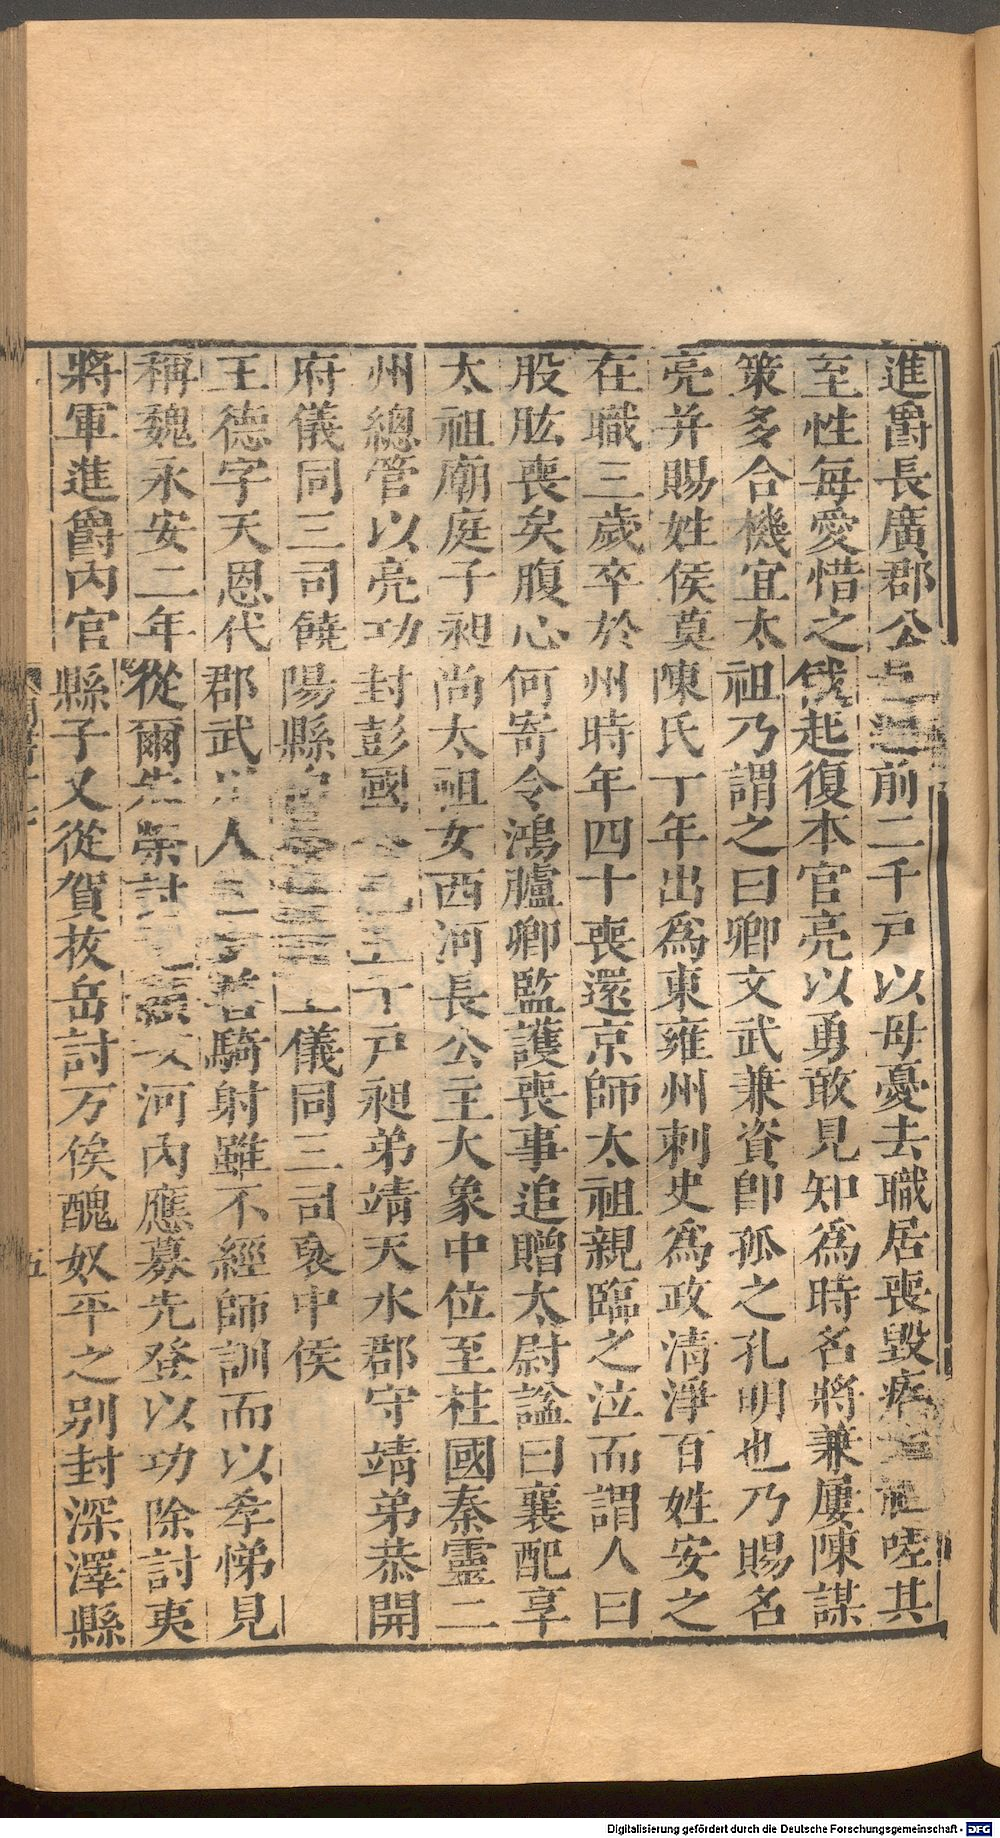 進爵長廣郡公邑通前二千戶以母憂去職居喪毀瘠太祖嗟其
至性每愛惜之俄起復本官亮以勇敢見知為時名將兼屢陳謀
策多合機宜太祖乃謂之曰卿文武兼資卽孤之孔明也乃賜名
亮并賜姓侯莫陳氏十年出為東雍州刺史為政清淨百姓安之
在職三歲卒於州時年四十喪還京師太祖親臨之泣而謂人曰
股肱喪矣腹心何寄令鴻臚卿監護喪事追贈太尉諡曰襄配享
太祖廟庭子昶尚太祖女西河長公主大象中位至柱國秦靈二
州總管以亮功封彭國五千戶昶弟靖天水郡守靖弟恭開
府儀同三司饒陽縣儀同三司襄中侯
王德字天恩代郡武川人善騎射雖不經師訓而以孝悌見
稱魏永安二年從爾朱榮討元顥攻河內應募先登以功除討夷
將軍進爵內官縣子又從賀拔岳討万俟醜奴平之別封深澤縣
五
Digitalisierung gefördert durch die Deutsche Forschungsgemeinschaft - DFG